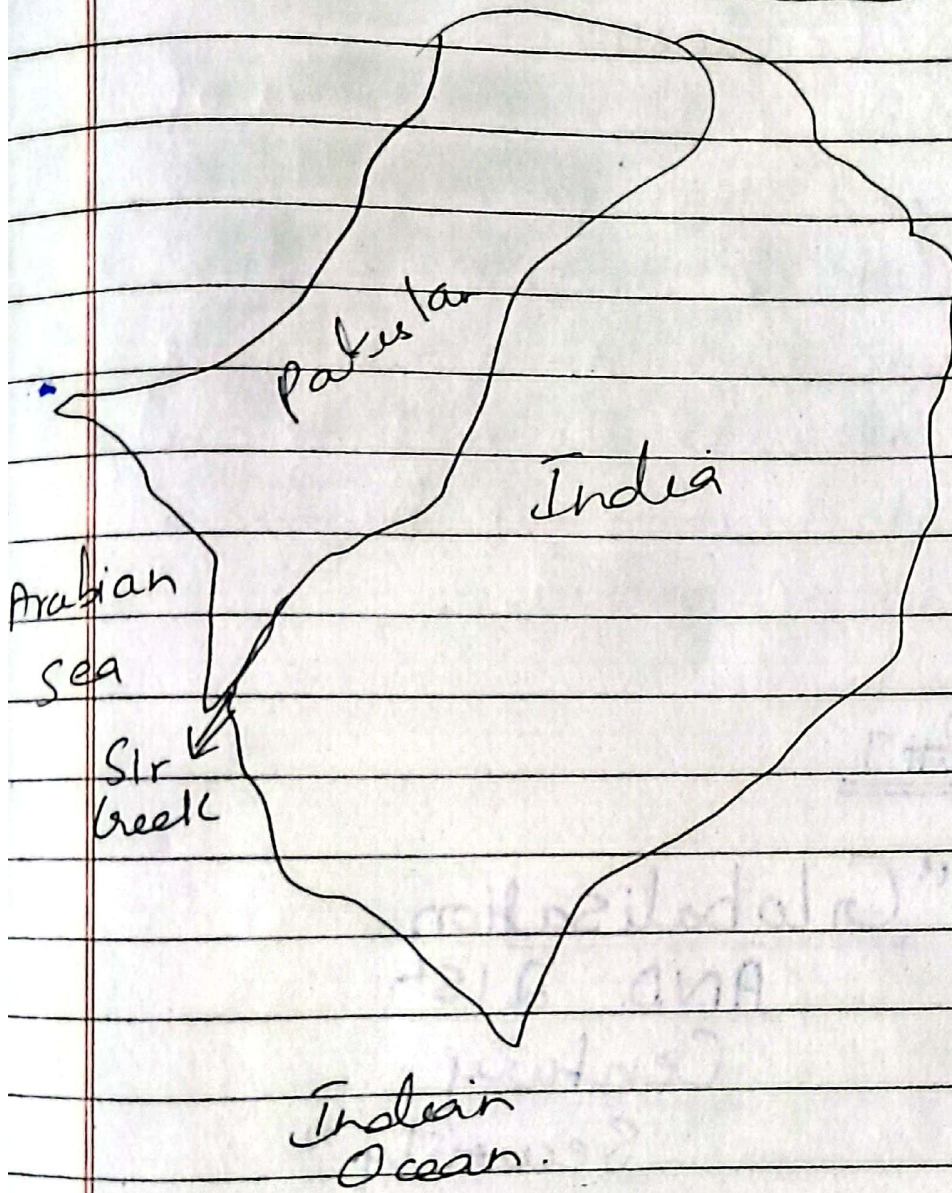 Pakistan
India
Arabian
Sea
Sir
Creek
Indian
Ocean.